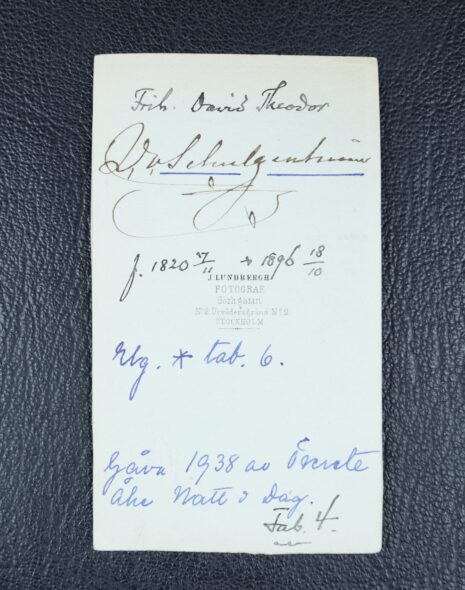 Frih. David Theodor
D. v. Schulzenheim
f. 1820 7/11 † 1896 18/10
J. LUNDBERGH
FOTOGRAF
Götgatan
Nº 2. Urvädersgränd Nº 2.
STOCKHOLM
Elg. * tab. 6.
Gåva 1938 av Överste
Åke Natt o Dag.
Tab. 4.